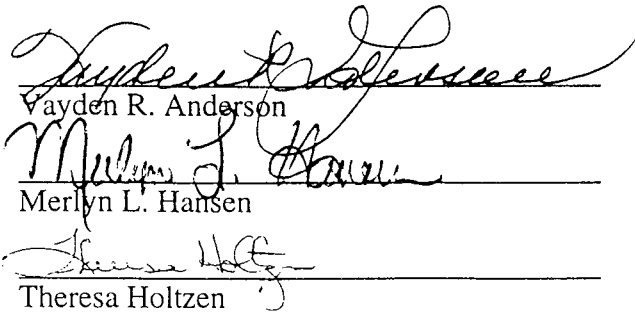 Vayden R. Anderson
Vayden R. Anderson
Merlyn L. Hansen
Merlyn L. Hansen
Theresa Holtzen
Theresa Holtzen